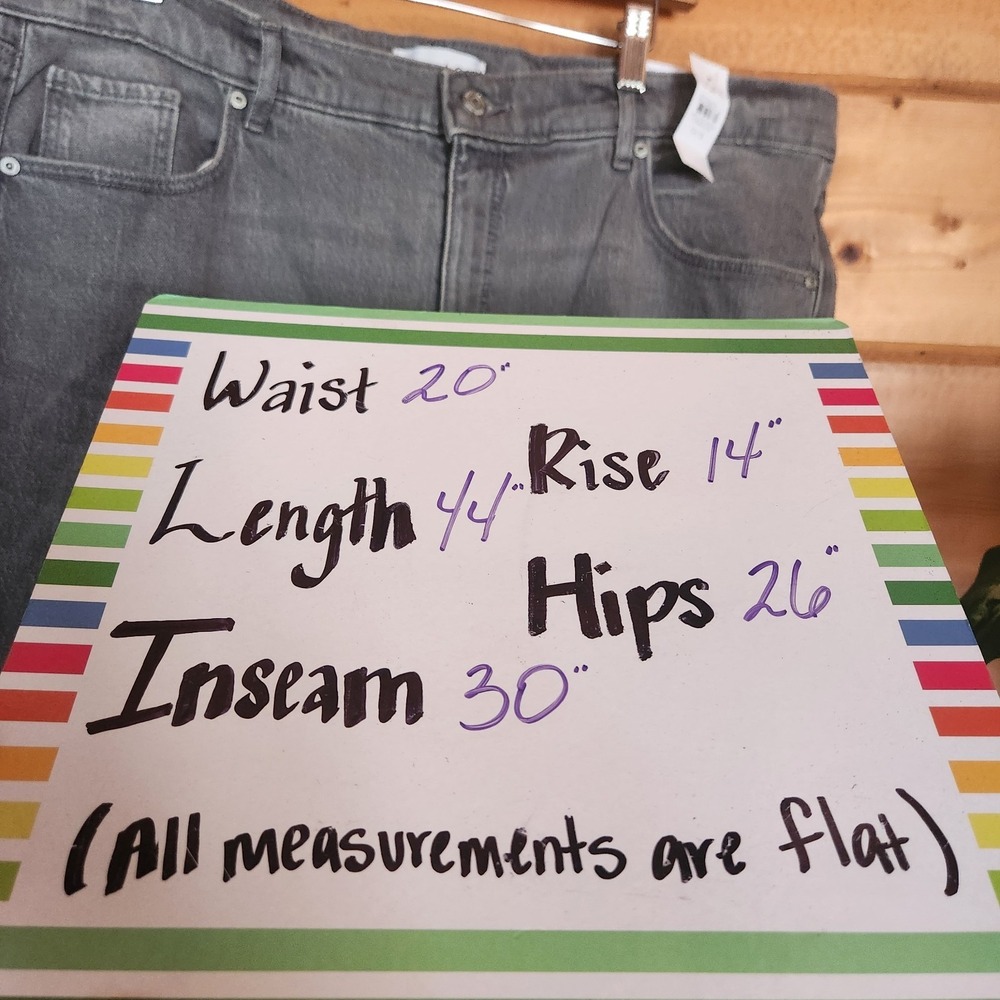 Waist 20"
Rise 14"
Length 44"
Hips 26"
Inseam 30"
(All measurements are flat)